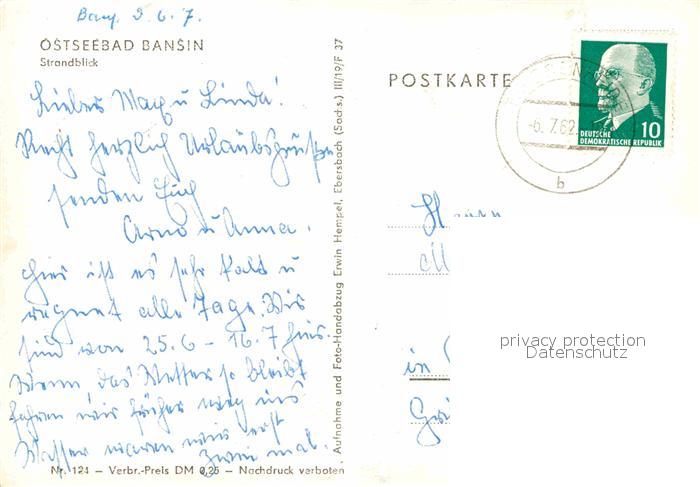 Bans. 3.6.7.
OSTSEEBAD BANSIN
Strandblick
Lieber Max u Linda!
Recht herzlich Urlaubsgrüße
senden Euch
Arno u Anna.
Hier ist es sehr kalt u
regnet alle Tage. Wir
sind von 25.6 - 16.7 hier.
Wenn das Wetter so bleibt
fahren wir früher weg ins
Wasser waren wir erst
zwei mal.
Nr. 124 – Verbr.-Preis DM 0,25 – Nachdruck verboten
Aufnahme und Foto-Handabzug Erwin Hempel, Ebersbach (Sachs.) III/19/F 37
POSTKARTE
-6. 7.62
b
10
DEUTSCHE
DEMOKRATISCHE REPUBLIK
in
privacy protection
Datenschutz